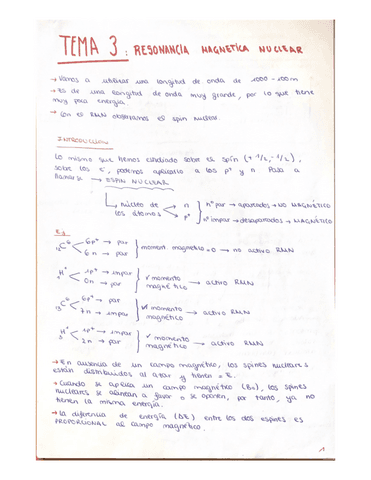 TEMA 3: RESONANCIA MAGNETICA NUCLEAR
→ Vamos a utilizar una longitud de onda de 1000-100m
→ Es de una longitud de onda muy grande, por lo que tiene
muy poca energía.
→ Con el RMN observamos el spin nuclear.
INTRODUCCION
Lo mismo que hemos estudiado sobre el spín (+1/2, -1/2),
sobre los e⁻, podemos aplicarlo a los p⁺ y n. Pasa a
llamarse → ESPIN NUCLEAR
núcleo de los átomos
n
p⁺
nº par → apareados → NO MAGNÉTICO
nº impar → desapareados → MAGNÉTICO
Ej
₁₂C⁶ 6p⁺ → par
6n → par
moment magnético = 0 → no activo RMN
₁H¹ 1p⁺ → impar
0n → par
✓ momento magnético → activo RMN
₁₃C⁶ 6p⁺ → par
7n → impar
✓ momento magnético → activo RMN
₃H¹ 1p⁺ → impar
2n → par
✓ momento magnético → activo RMN
→ En ausencia de un campo magnético, los spines nucleares
están distribuidos al azar y tienen = E.
→ Cuando se aplica un campo magnético (B₀), los spines
nucleares se alinean a favor o se oponen, por tanto, ya no
tienen la misma energía.
→ La diferencia de energía (ΔE) entre los dos espines es
PROPORCIONAL al campo magnético.
1